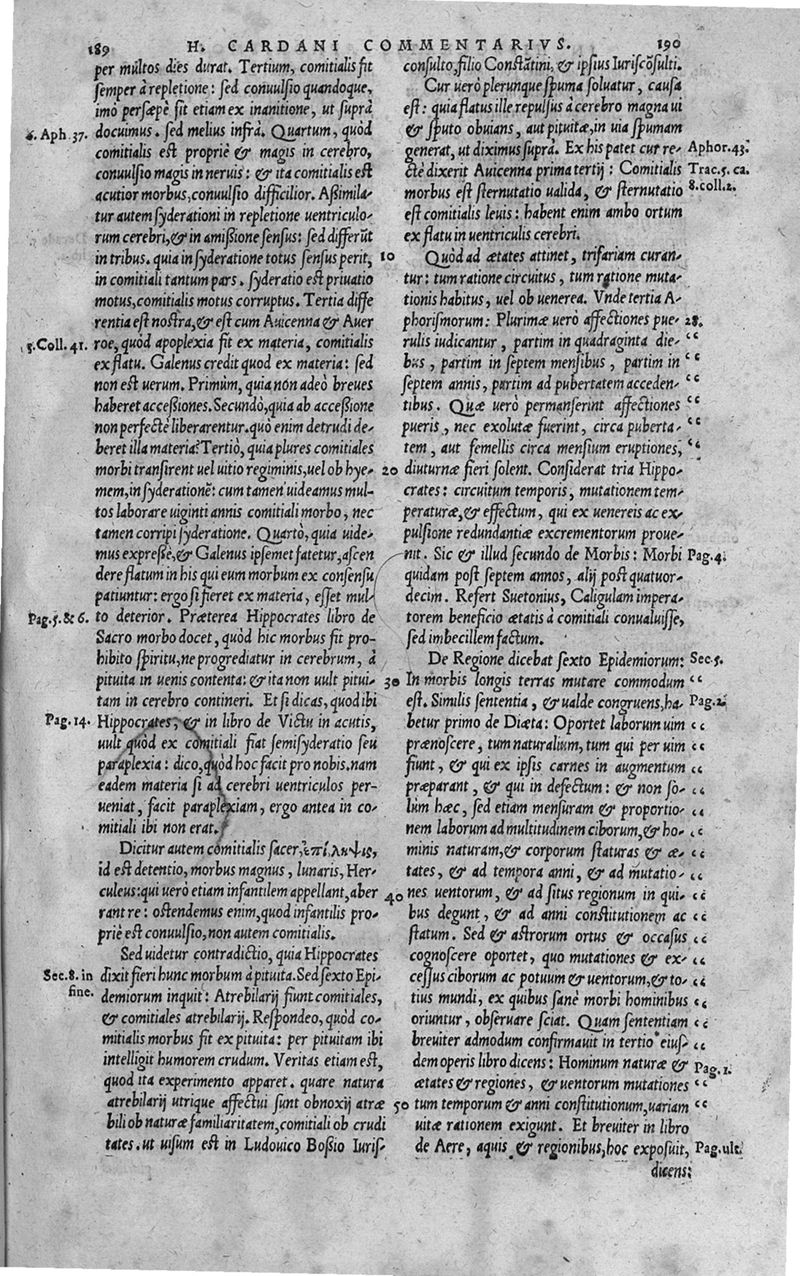 189 H. CARDANI COMMENTARIVS. 190
per multos dies durat. Tertium, comitialis fit
semper à repletione: sed conuulsio quandoque,
imò persæpè fit etiam ex inanitione, ut suprà
6. Aph. 37. documus. sed melius infrà. Quartum, quòd
comitialis est propriè & magis in cerebro,
conuulsio magis in neruis: & ita comitialis est
acutior morbus, conuulsio difficilior. Aßimila-
tur autem syderationi in repletione uentriculo-
rum cerebri, & in amißione sensus: sed differũt
in tribus. quia in syderatione totus sensus perit, 10
in comitiali tantum pars. syderatio est priuatio
motus, comitialis motus corruptus. Tertia diffe
rentia est nostra, & est cum Auicenna & Auer
5. Coll. 41. roe, quòd apoplexia fit ex materia, comitialis
ex flatu. Galenus credit quod ex materia: sed
non est uerum. Primùm, quia non adeò breues
haberet acceßiones. Secundò, quia ab acceßione
non perfectè liberarentur. quò enim detrudi de-
beret illa materia? Tertiò, quia plures comitiales
morbi transirent uel uitio regiminis, uel ob hye- 20
mem, in syderationẽ: cum tamen uideamus mul-
tos laborare uiginti annis comitiali morbo, nec
tamen corripi syderatione. Quartò, quia uide-
mus expreßè, & Galenus ipsemet fatetur, ascen
dere flatum in his qui eum morbum ex consensu
patiuntur: ergo si fieret ex materia, esset mul-
Pag. 5. & 6. to deterior. Præterea Hippocrates libro de
Sacro morbo docet, quòd hic morbus fit pro-
hibito spiritu, ne progrediatur in cerebrum, à
pituita in uenis contenta: & ita non uult pitui- 30
tam in cerebro contineri. Et si dicas, quod ibi
Pag. 14. Hippocrates, & in libro de Victu in acutis,
uult quòd ex comitiali fiat semisyderatio seu
paraplexia: dico, quòd hoc facit pro nobis. nam
eadem materia si ad cerebri uentriculos per-
ueniat, facit paraplexiam, ergo antea in co-
mitiali ibi non erat.
Dicitur autem comitialis sacer, ἐπίληψις,
id est detentio, morbus magnus, lunaris, Her-
culeus: qui uerò etiam infantilem appellant, aber 40
rant re: ostendemus enim, quod infantilis pro-
priè est conuulsio, non autem comitialis.
Sed uidetur contradictio, quia Hippocrates
Sec. 8. in dixit fieri hunc morbum à pituita. Sed sexto Epi-
fine. demiorum inquit: Atrebilarij fiunt comitiales,
& comitiales atrebilarij. Respondeo, quòd co-
mitialis morbus fit ex pituita: per pituitam ibi
intelligit humorem crudum. Veritas etiam est,
quod ita experimento apparet. quare natura
atrebilarij utrique affectui sunt obnoxij atræ 50
bili ob naturæ familiaritatem, comitiali ob crudi
tates. ut uisum est in Ludouico Boßio Iuris-
consulto, filio Constãtini, & ipsius Iuriscõsulti.
Cur uerò plerunque spuma soluatur, causa
est: quia flatus ille repulsus à cerebro magna ui
& sputo obuians, aut pituitæ, in uia spumam
generat, ut diximus suprà. Ex his patet cur re- Aphor. 43.
ctè dixerit Auicenna prima tertij: Comitialis Trac. 5. ca.
morbus est sternutatio ualida, & sternutatio 8. coll. 2.
est comitialis leuis: habent enim ambo ortum
ex flatu in uentriculis cerebri.
Quòd ad ætates attinet, trifariam curan-
tur: tum ratione circuitus, tum ratione muta-
tionis habitus, uel ob uenerea. Vnde tertia A-
phorismorum: Plurimæ uerò affectiones pue- 28.
rulis iudicantur, partim in quadraginta die- “
bus, partim in septem mensibus, partim in “
septem annis, partim ad pubertatem acceden- “
tibus. Quæ uerò permanserint affectiones “
pueris, nec exolutæ fuerint, circa puberta- “
tem, aut femellis circa mensium eruptiones, “
diuturnæ fieri solent. Considerat tria Hippo-
crates: circuitum temporis, mutationem tem-
peraturæ, & effectum, qui ex uenereis ac ex-
pulsione redundantiæ excrementorum proue-
nit. Sic & illud secundo de Morbis: Morbi Pag. 4.
quidam post septem annos, alij post quatuor-
decim. Refert Suetonius, Caligulam impera-
torem beneficio ætatis à comitiali conualuisse,
sed imbecillem factum.
De Regione dicebat sexto Epidemiorum: Sec. 5.
In morbis longis terras mutare commodum “
est. Similis sententia, & ualde congruens, ha- Pag. 2.
betur primo de Diæta: Oportet laborum uim “
prænoscere, tum naturalium, tum qui per uim “
fiunt, & qui ex ipsis carnes in augmentum “
præparant, & qui in defectum: & non so- “
lùm hæc, sed etiam mensuram & proportio- “
nem laborum ad multitudinem ciborum, & ho- “
minis naturam, & corporum staturas & æ- “
tates, & ad tempora anni, & ad mutatio- “
nes uentorum, & ad situs regionum in qui- “
bus degunt, & ad anni constitutionem ac “
statum. Sed & astrorum ortus & occasus “
cognoscere oportet, quo mutationes & ex- “
cessus ciborum ac potuum & uentorum, & to- “
tius mundi, ex quibus sanè morbi hominibus “
oriuntur, obseruare sciat. Quam sententiam “
breuiter admodum confirmauit in tertio eius- “
dem operis libro dicens: Hominum naturæ & Pag. 1.
ætates & regiones, & uentorum mutationes “
tum temporum & anni constitutionum, uariam “
uitæ rationem exigunt. Et breuiter in libro
de Aere, aquis & regionibus, hoc exposuit, Pag. ult.
dicens: